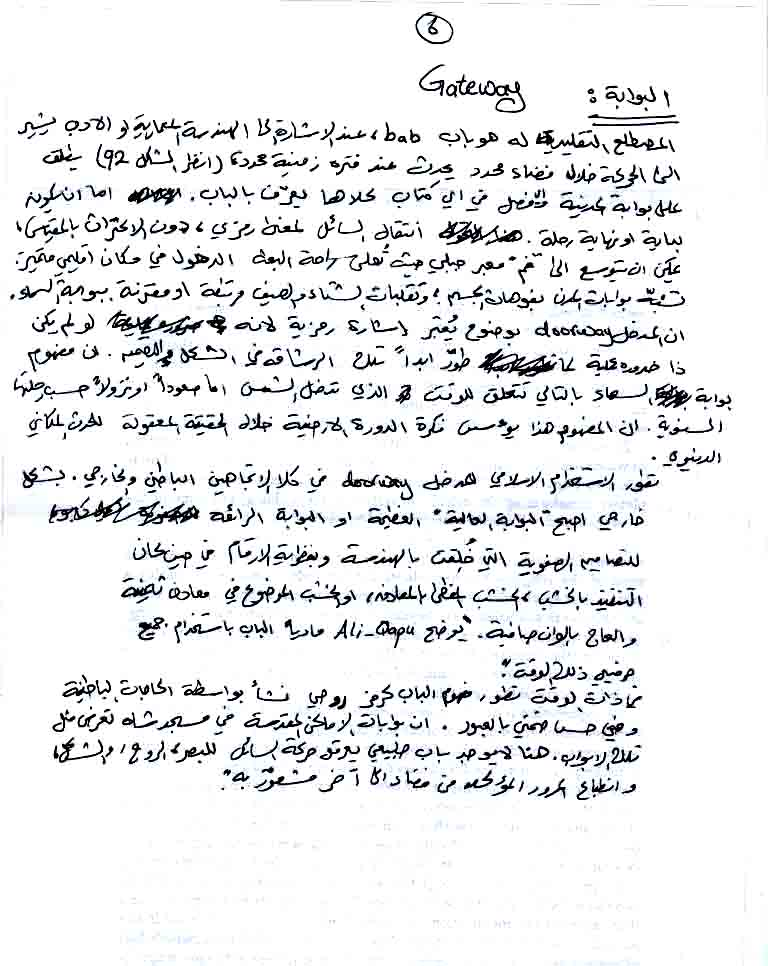 6
البوابة : Gateway
المصطلح التقليدي له هو باب bab، عند الاشارة الى الهندسة المعمارية او الادب يشير
الى الحركة خلال فضاء محدد يحدث عند فترة زمنية محددة (انظر الشكل 92) يطلق
على بوابة المدينة في اي كتاب بالباب. اما ان يكون
بداية او نهاية رحلة. انتقال السائل لمعنى رمزي، دون الاكتراث بالمقياس،
يمكن ان يتوسع الى "فم" معبر جبلي حيث تُعلن راحة البعد الدخول في مكان اقليمي متميز.
بوابات المدن بفوهات الجسم، وتقلبات الشتاء والصيف مرتبطة او مقترنة ببوابة السماء.
ان المدخل doorway بوضوح يُعتبر اشارة رمزية لانه لو لم يكن
ذا ضرورة عملية لما طوّر ابداً تلك الرشاقة في الشكل و. ان مفهوم
بوابة السماء بالتالي تتعلق للوقت الذي تدخل الشمس اما صعوداً او نزولاً حسب رحلتها
السنوية. ان المفهوم هذا يؤسس فكرة الدورة الارضية خلال الحقيقة المعقولة للحدث المكاني
الدنيوي.
تطور الاستخدام الاسلامي للمدخل doorway في كلا الاتجاهين الباطني والخارجي. بشكل
خارجي اصبح "البوابة العالية" العظيمة او البوابة الرائعة
للتصاميم التي خُلقت بالهندسة ونظرية الارقام في حين كان
التنفيذ بالخشب، الخشب المغطى بالمعادن، او الخشب الموضوع في معادن ثمينة
والعاج بالوان صافية. "يوضح Ali-Qapu مادية الباب باستخدام جميع
حرفيي ذلك الوقت".
في ذات الوقت تطور الباب كرمز روحي نشأ بواسطة الحاجات الباطنية
وفي حس ضمني بالعبور. ان بوابات الاماكن المقدسة في مسجد شاه تعرض مثل
تلك الابواب. هنا لا يوجد باب طبيعي يعرقل حركة السائل للبصر، الروح، والشكل،
وانطباع المرور المؤكد من فضاء الى آخر مشعور به".